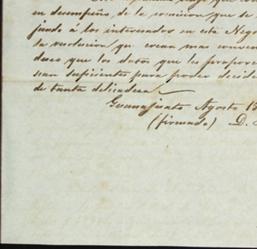 en desempeño de la comision que se
jando á los interesados en esta Nego
la resolucion qe crean mas conven
dose que los datos que les propor
sean suficientes para poder decidi
de tanta delicadeza
Guanajuato Agosto 15
(firmado) D.